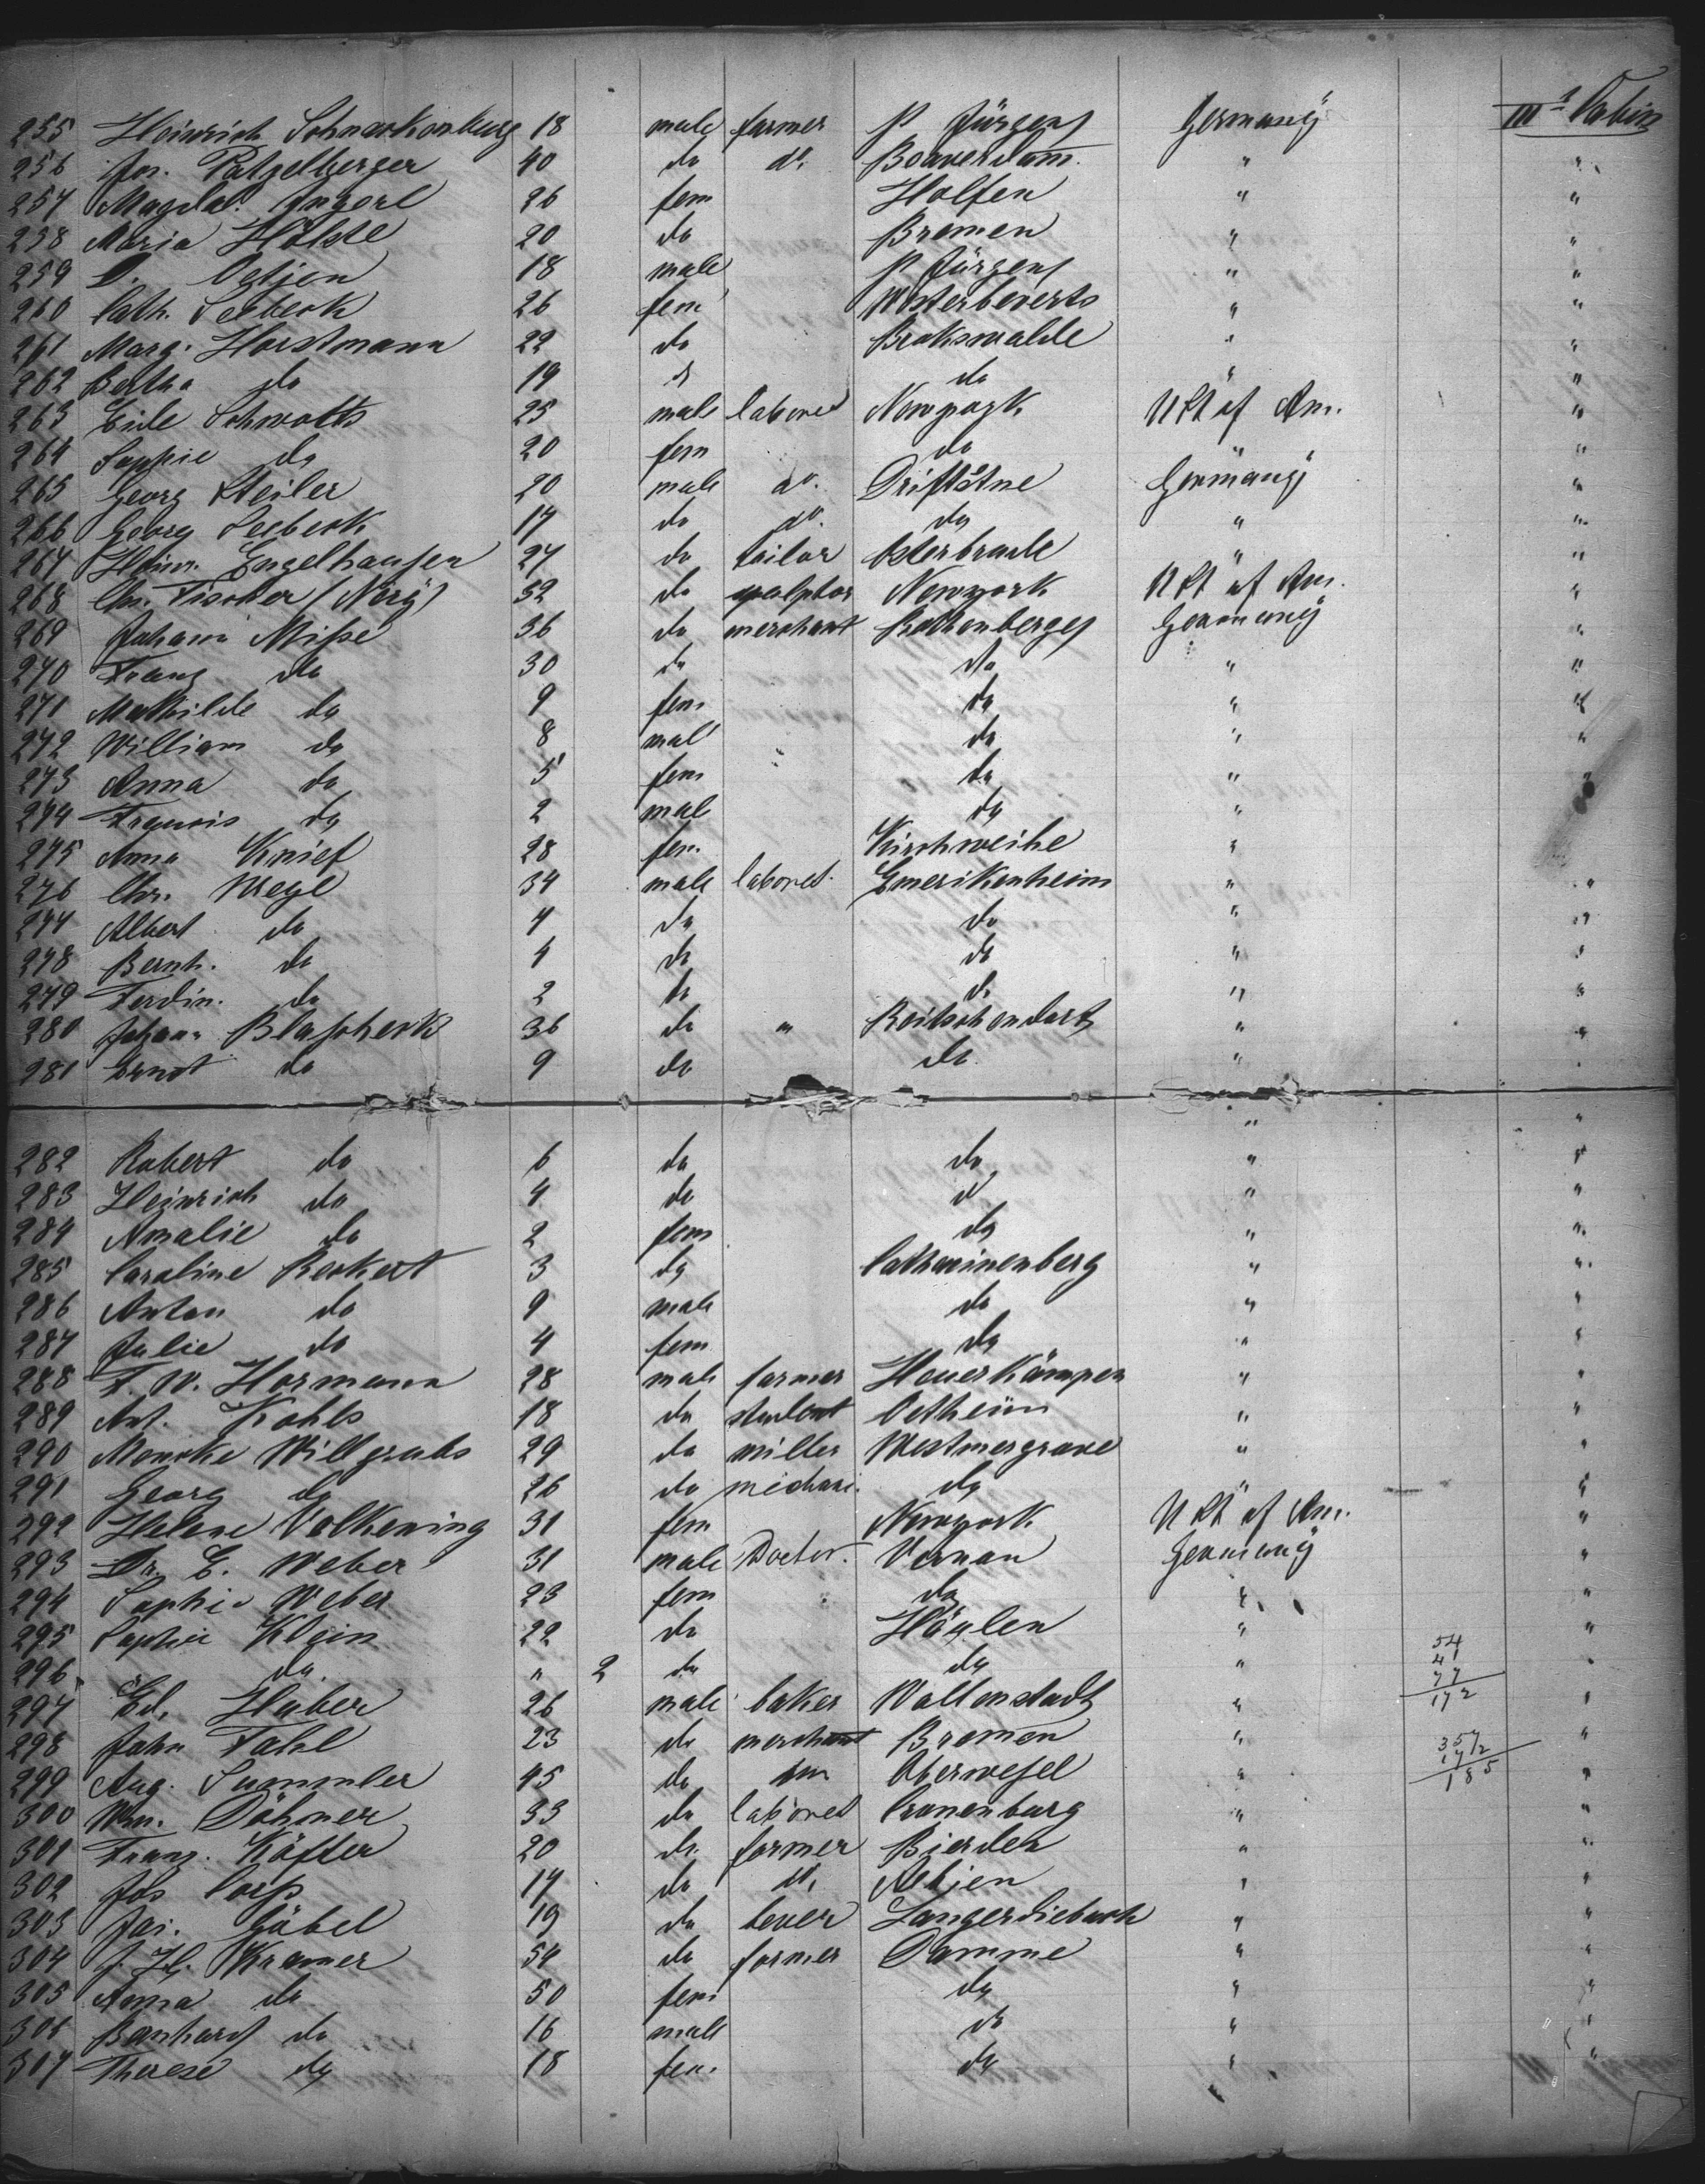 IIId Cabin
255 Heinrich Schnackenburg 18 male farmer St Jürgens Germany
256 Jos. Patzelberger 40 do do. Beaverdam "
257 Magdal. 26 fem Halfen " "
258 Maria Holste 20 do Bremen " "
259 D. Oetjen 18 male St Jürgens " "
260 Cath. Seebeck 26 fem " "
261 Marg. Horstmann 22 do Brokswalde " "
262 Bertha do 19 do do " "
263 Schwolts 25 male laborer Newyork USt of Am. "
264 Sophie do 20 fem do " "
265 Georg Steiler 20 male do. Germany "
266 Georg Seebeck 17 do do. do " "
267 Heinr. Engelhausen 27 do tailor " "
268 Chr. Fischer (Nerg) 52 do Newyork USt of Am. "
269 Johann Misse 36 do merchant Rothenberges Germany "
270 Franz do 30 do do " "
271 Mathilde do 9 fem do " "
272 William do 8 mal do " "
273 Anna do 5 fem do " "
274 François do 2 mal do " "
275 Anna Knief 28 fem. Kirchweihe "
276 Chr. Wege 34 male laborer Emerikenheim " "
277 Albert do 4 do do " "
278 Bernh. do 4 do do " "
279 Ferdin. do 2 do do " "
280 Johann Blascheck 36 do " Reitschendorf " "
281 Ernst do 9 do do " "
" "
282 Robert do 6 do do " "
283 Heinrich do 4 do do " "
284 Amalie do 2 fem do " "
285 Caroline Reckert 3 do Catharinenberg " "
286 Anton do 9 male do " "
287 Julie do 4 fem do " "
288 F. W. Hormann 28 male farmer Heuerkämpen " "
289 Ant. Kohls 18 do student Ostheim " "
290 Moncke Willgrubs 29 do miller Westmergrave " "
291 Georg do 26 do mechani. do " "
292 Helene Volkening 31 fem Newyork USt of Am. "
293 Dr. E. Weber 31 male Doctor. Vernan Germany "
294 Sophie Weber 23 fem do " "
295 Sophie Klein 22 do " "
296 do. " 2 do do " "
54
41
77
172
297 Ed. Huber 26 male baker Wallenstadt " "
298 John Fahl 23 do merchant Bremen " "
357
172
185
299 Aug. Summler 45 do Oberwesel " "
300 Wm. Döhmer 33 do laborer Cronenburg " "
301 Franz. Köfter 20 do. farmer Bierden " "
302 Jos Corss 17 do do. Aetjen " "
303 Joi. Göbel 19 do Langerdiebach " "
304 J. H. Kramer 54 do farmer Damme " "
305 Anna do 50 fem do " "
306 Banhard do 16 male do " "
307 Therese do 18 fem. do " "